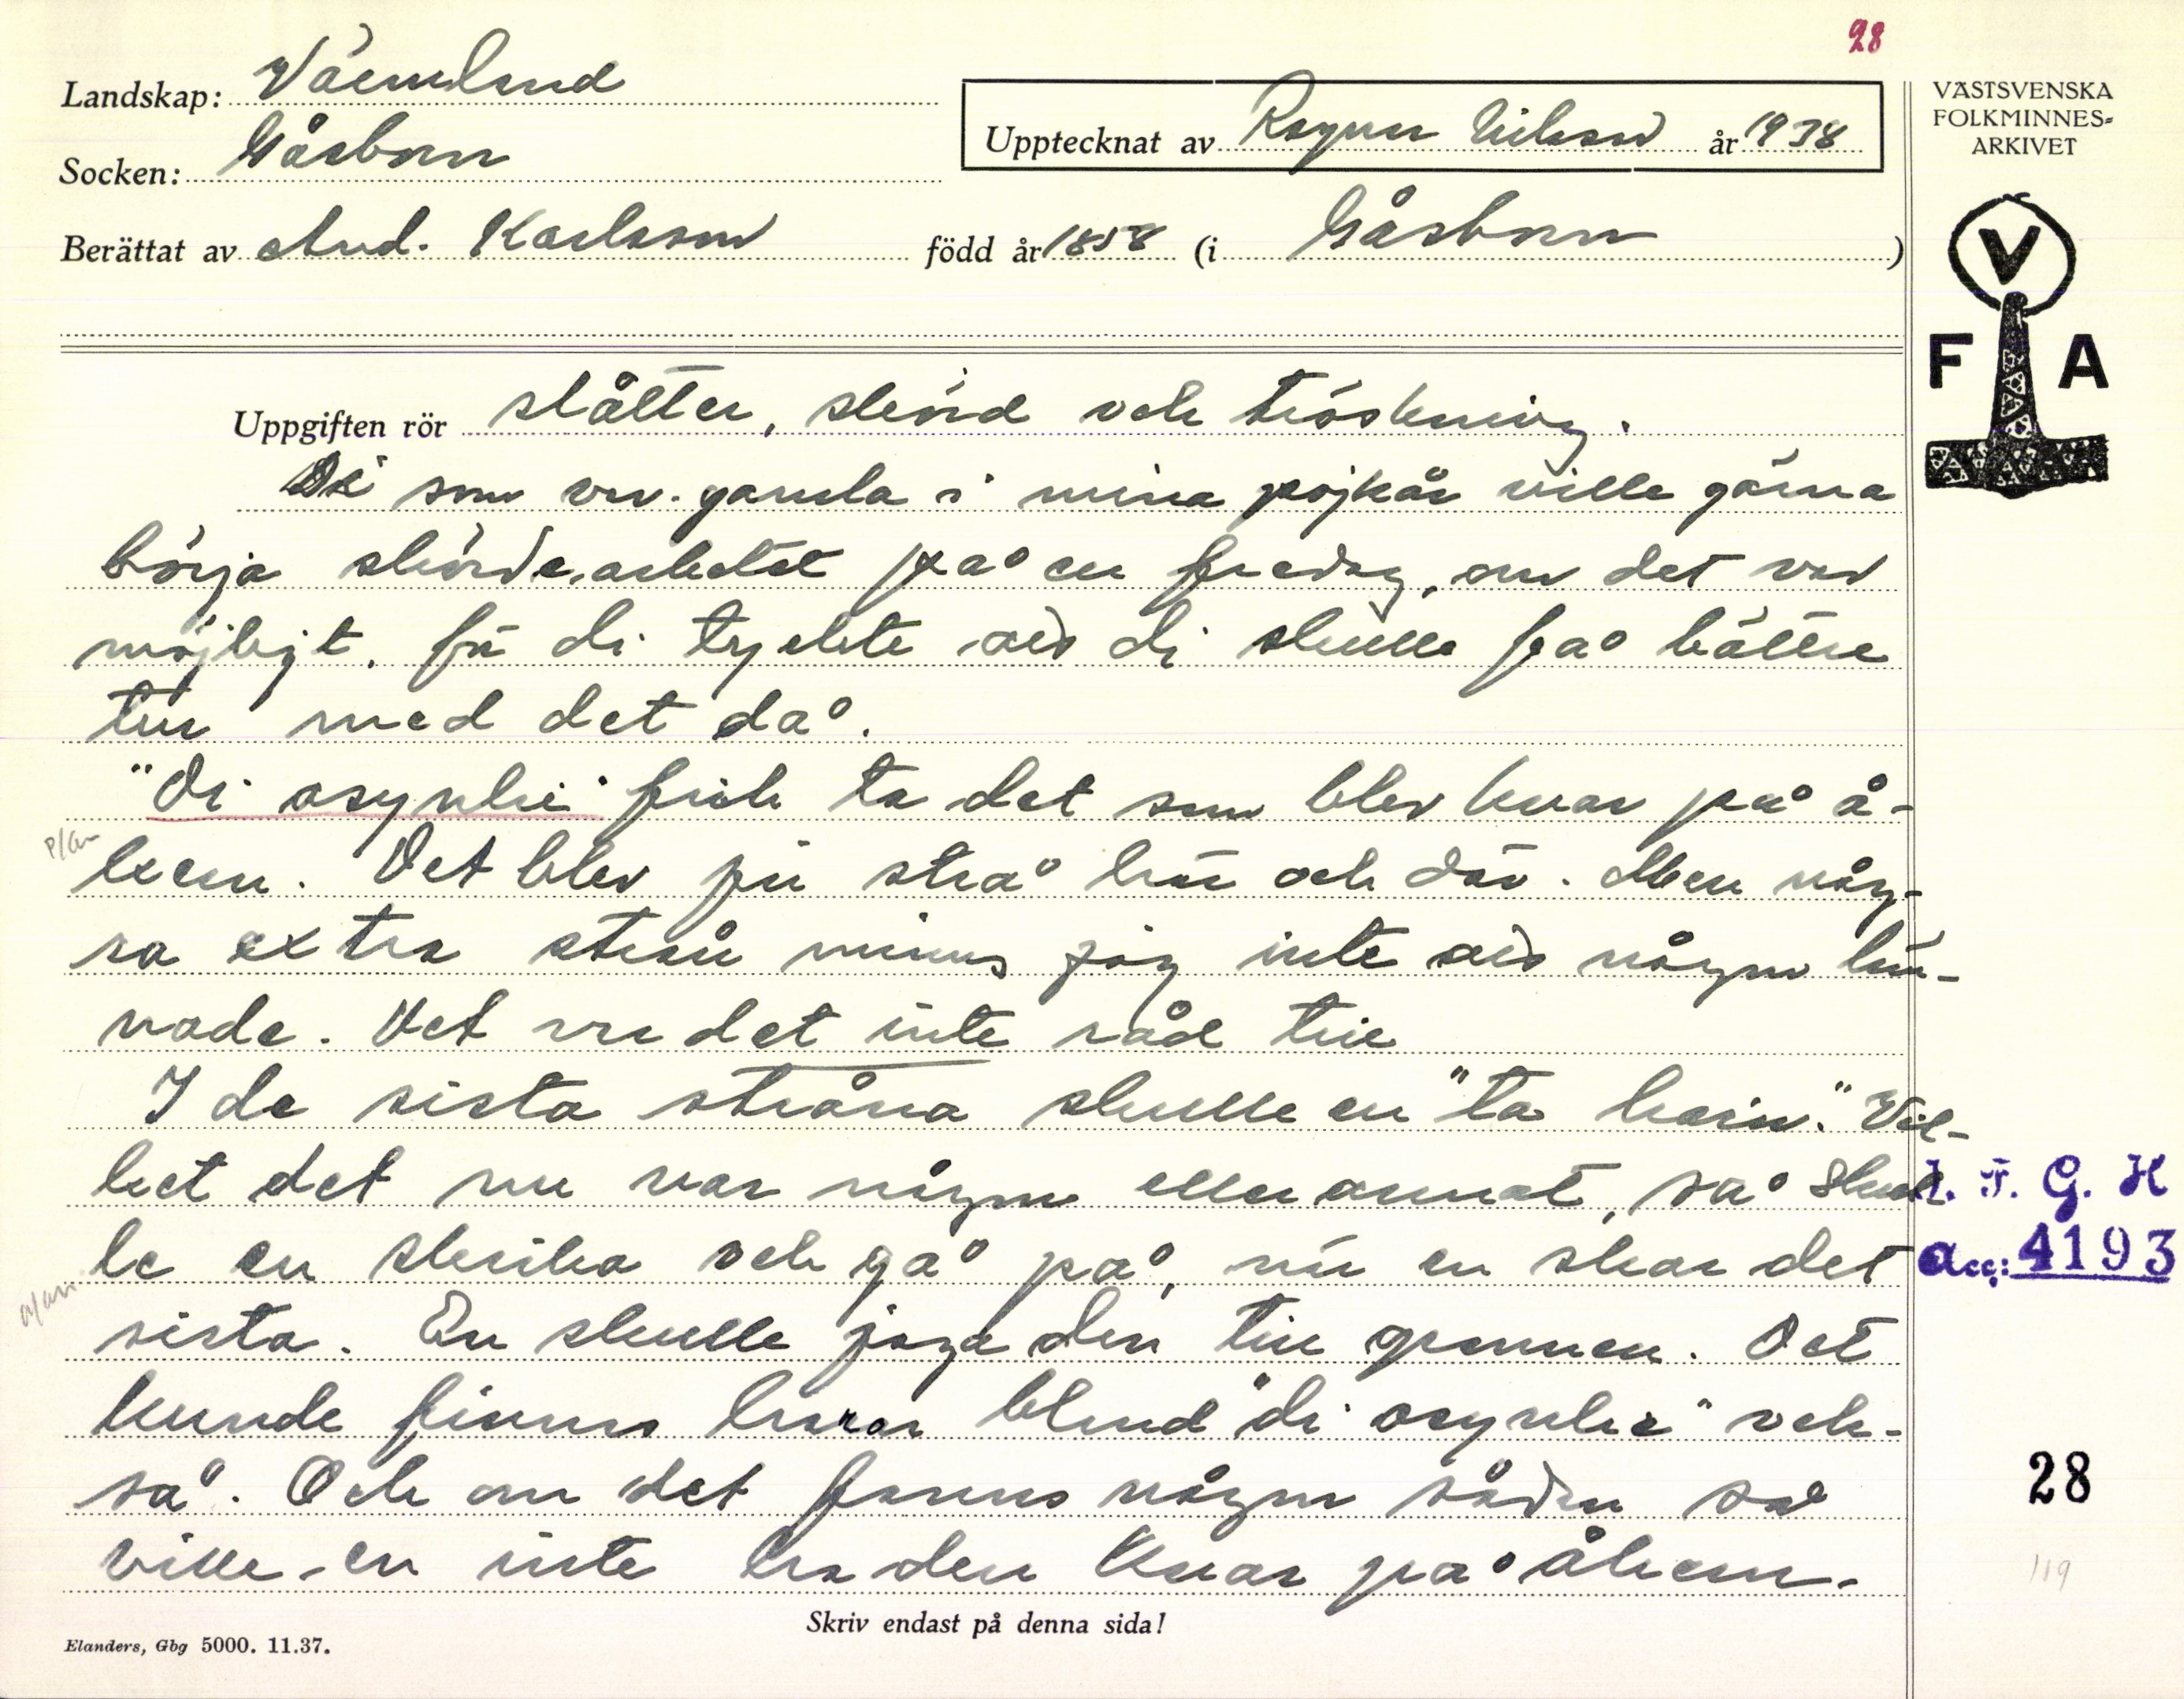 28
Landskap: Värmland
Socken: Gåsborn
Upptecknat av Ragnar Nilsson år 1938
Berättat av And. Karlsson född år 1858 (i Gåsborn)
VÄSTSVENSKA
FOLKMINNES-
ARKIVET
V
F A
Uppgiften rör slåtter, skörd och tröskning.
Di som var gamla i mina pojkår ville gärna
börja skördearbetet på en fredag, om det var
möjligt, för di tyckte att di skulle få bättre
tur med det då.
"Di osynlie" fick ta det som blev kvar på å-
kern. Det blev ju strå här och där. Men någ-
ra extra strån minns jag inte att någon läm-
nade. Det va det inte råd till
I de sista stråna skulle en "ta harin". Vil-
ket det nu var någon eller annat, så skul-
le en skrika och gå på, när en skar det
sista. En skulle jaga den till grannen. Det
kunde finnas harar bland "di osynlie" ock-
så. Och om det fanns någon sådan så
ville en inte ha den kvar på åkern.
I. F. G. H
Acc: 4193
28
119
Skriv endast på denna sida!
Elanders, Gbg 5000. 11.37.